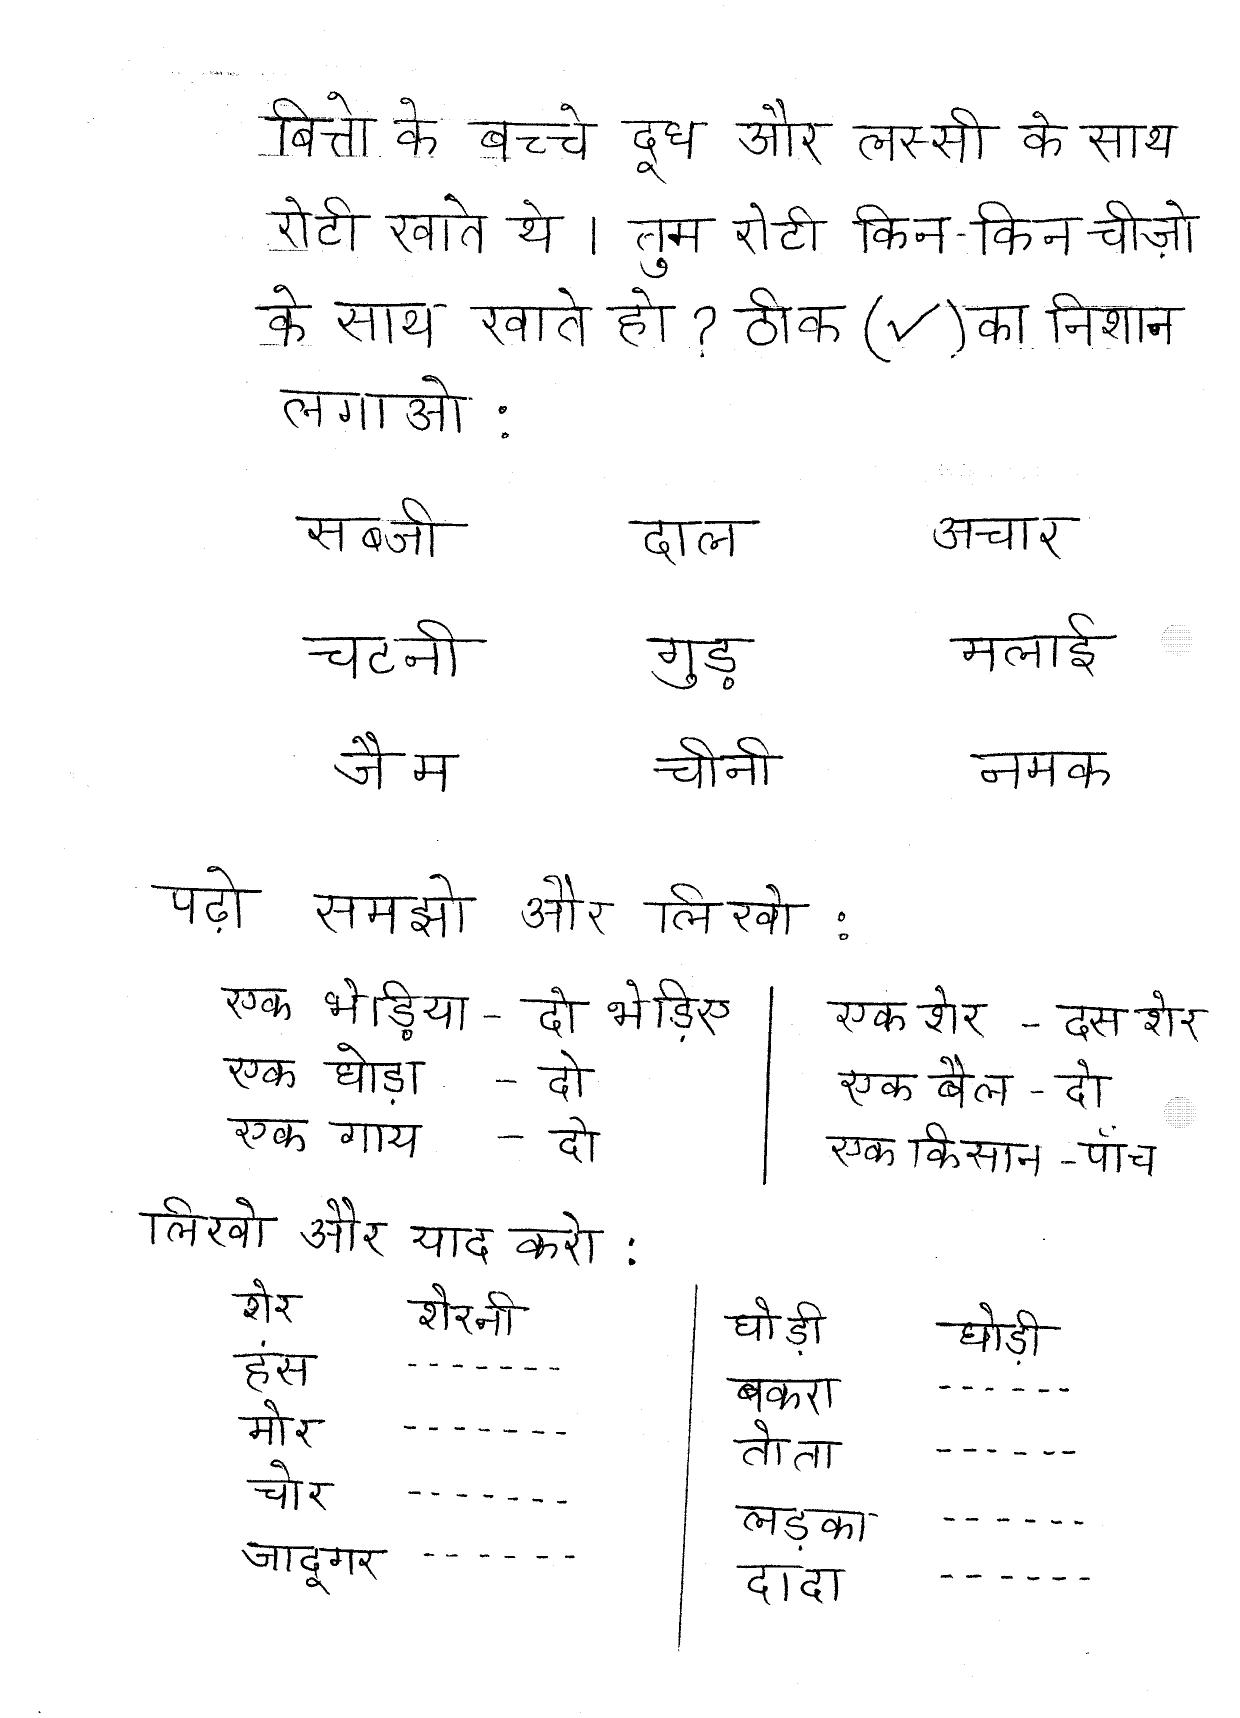 बित्तो के बच्चे दूध और लस्सी के साथ
रोटी खाते थे । तुम रोटी किन-किन चीज़ो
के साथ खाते हो ? ठीक (✓) का निशान
लगाओ :
सब्जी दाल अचार
चटनी गुड़ मलाई
जैम चीनी नमक
पढ़ो समझो और लिखो :
एक भेड़िया - दो भेड़िए | एक शेर - दस शेर
एक घोड़ा - दो | एक बैल - दो
एक गाय - दो | एक किसान - पाँच
लिखो और याद करो :
शेर शेरनी | घोड़ी घोड़ी
हंस ------- | बकरा ------
मोर ------- | तोता ------
चोर ------- | लड़का ------
जादूगर ------ | दादा ------